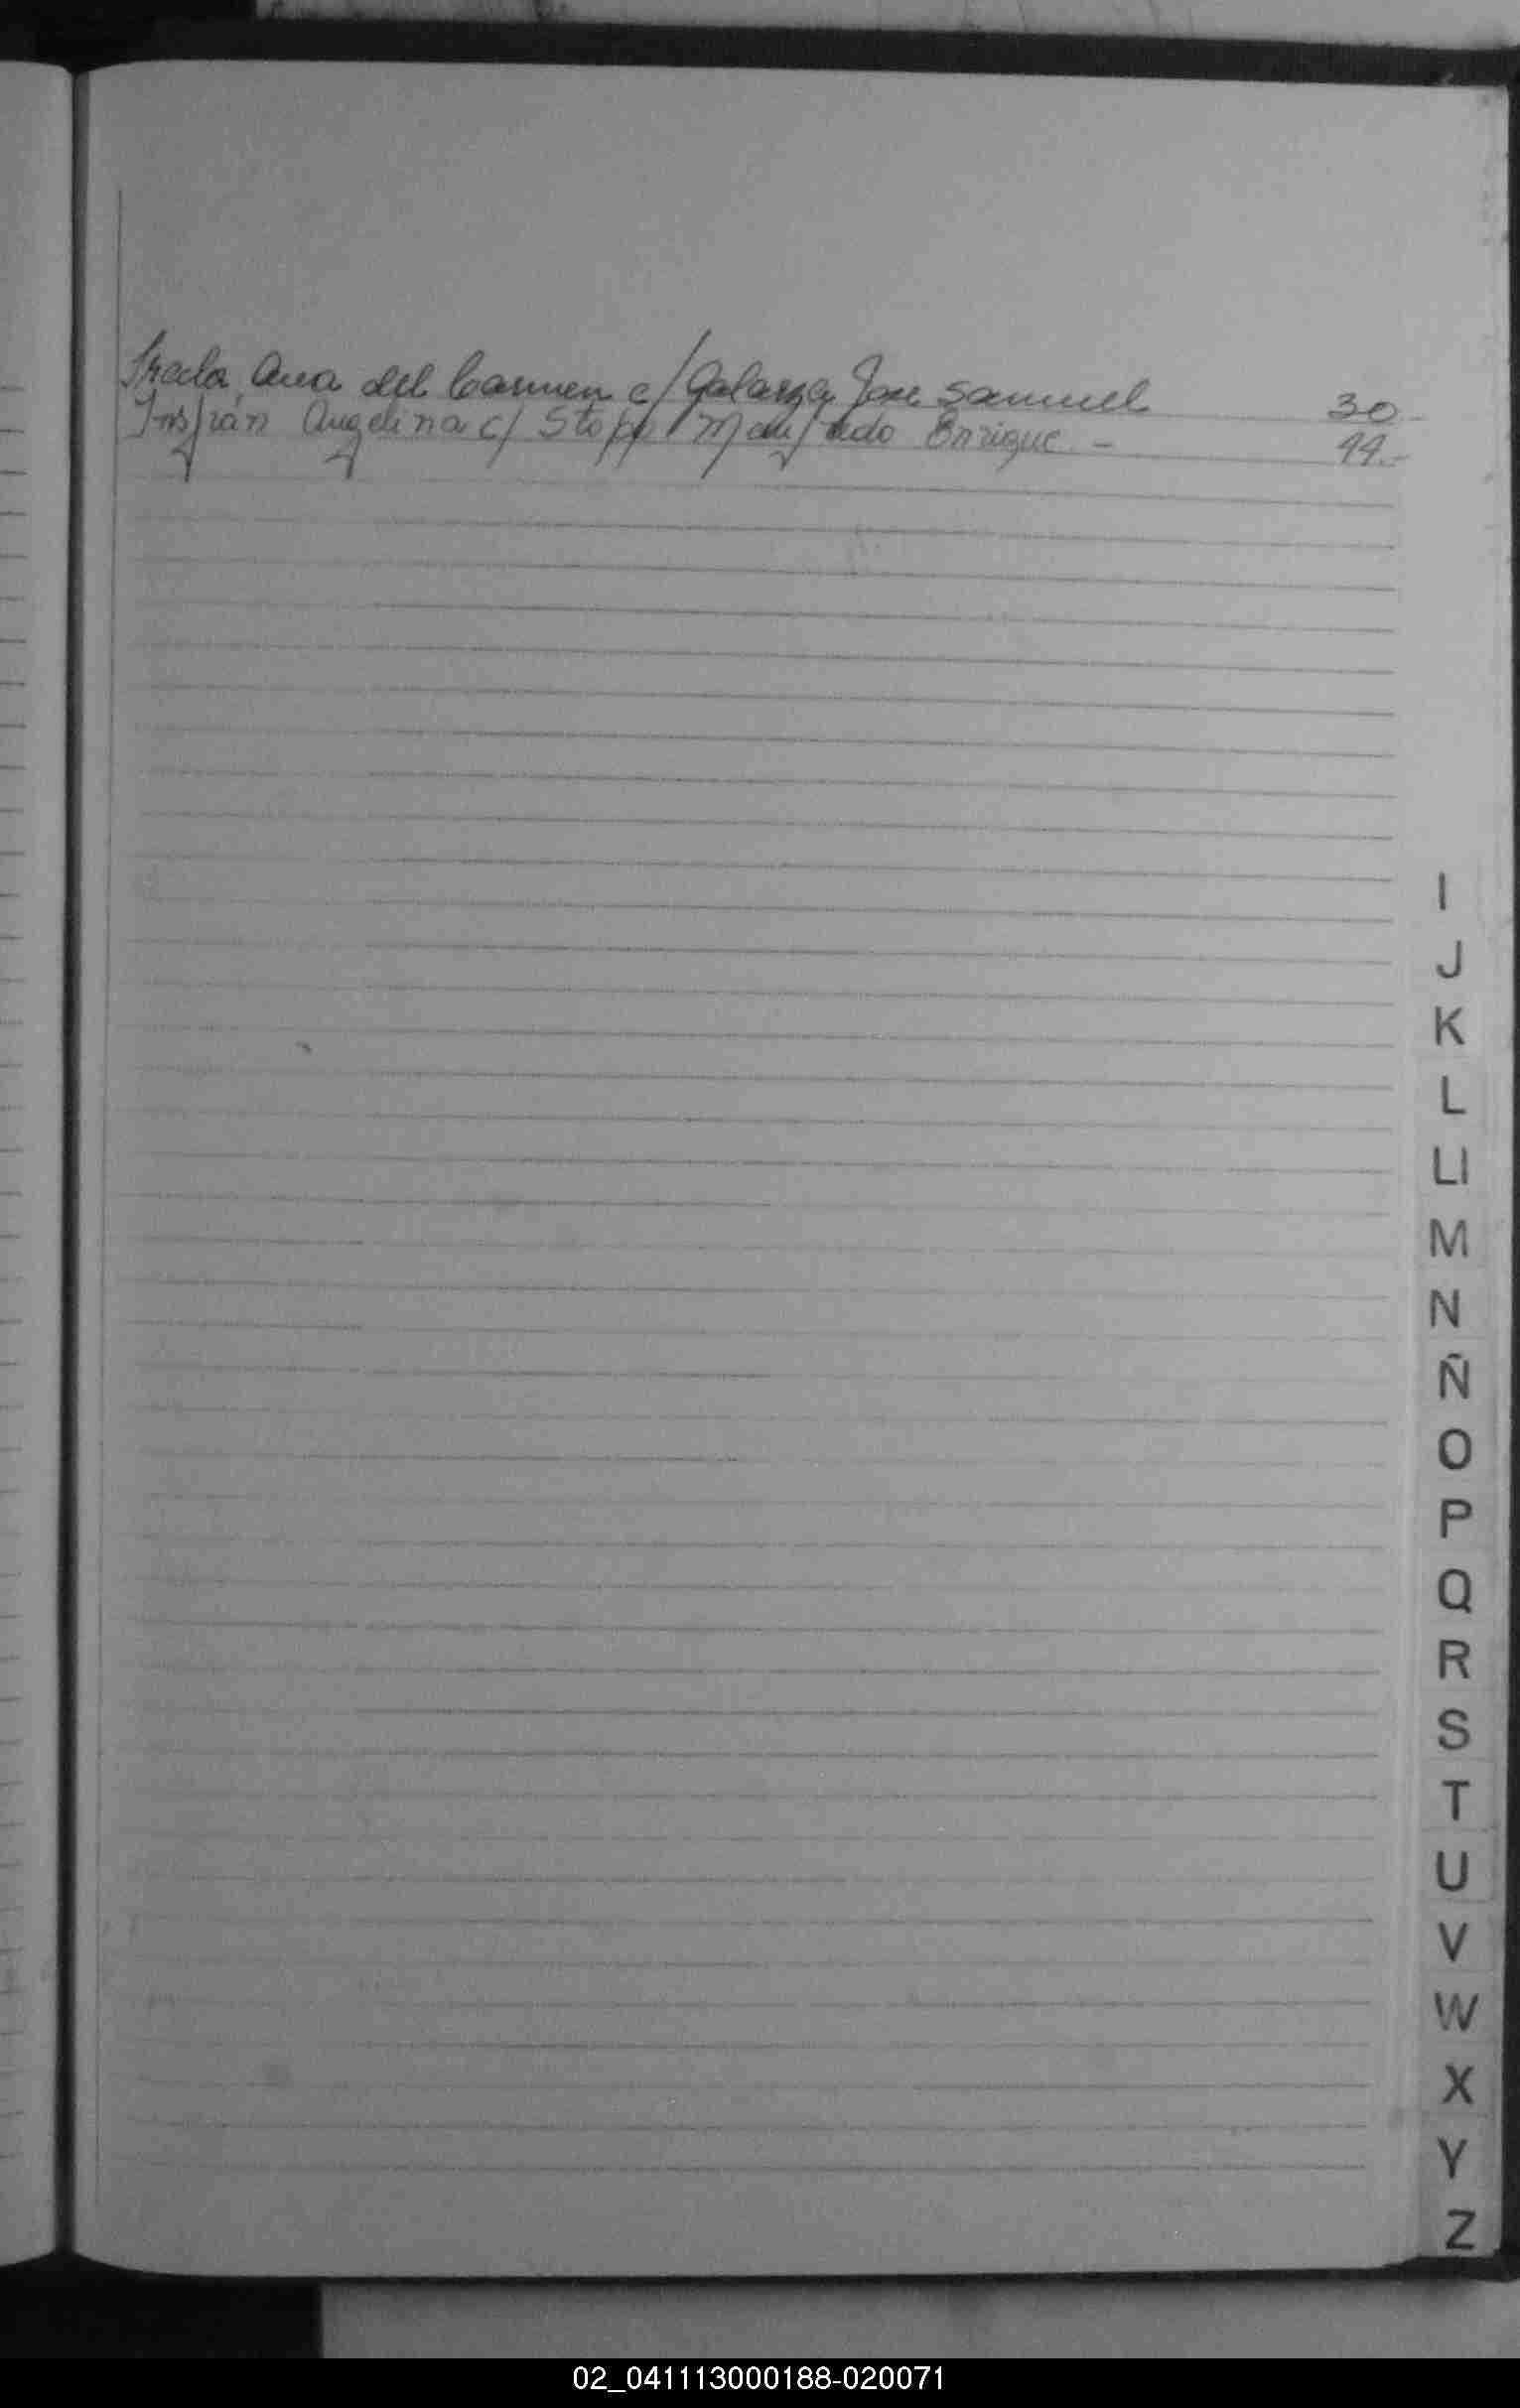 Irala, Ana del Carmen c/ Galarza Jose Samuel 30-
Insfrán Angelina c/ Stopp Manfredo Enrique - 44.-
I
J
K
L
Ll
M
N
Ñ
O
P
Q
R
S
T
U
V
W
X
Y
Z
02_041113000188-020071